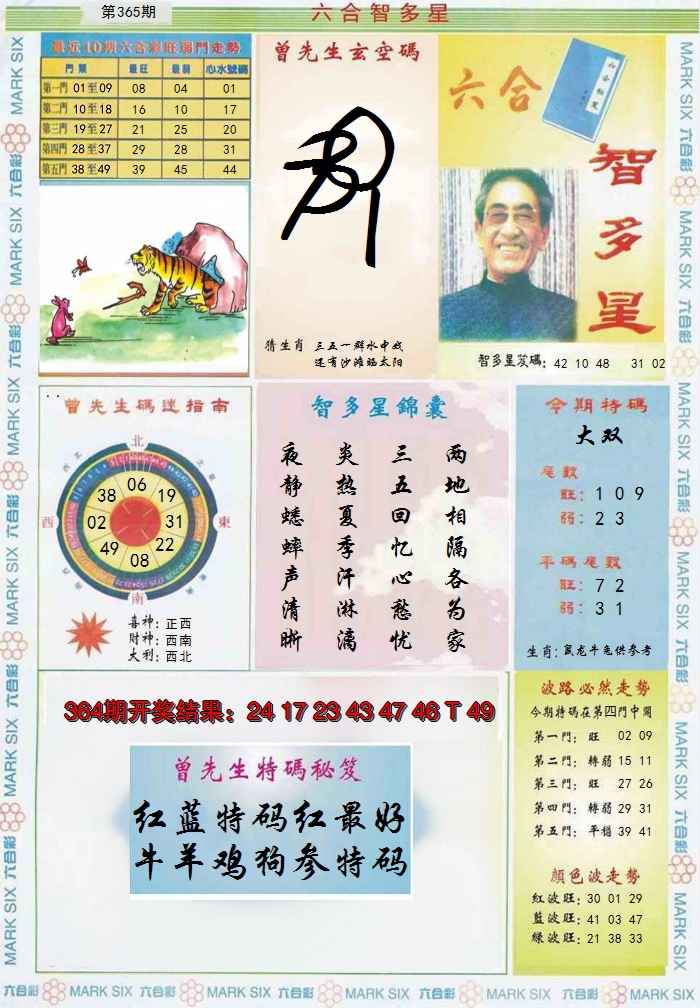 第365期
六合智多星
最近10期六合彩旺弱門走勢
門類 最旺 最弱 心水號碼
第一門 01至09 08 04 01
第二門 10至18 16 10 17
第三門 19至27 21 25 20
第四門 28至37 29 28 31
第五門 38至49 39 45 44
曾先生玄空碼
猜生肖 三五一群水中戏
还有沙滩临太阳
六合
智多星
智多星笈碼: 42 10 48 31 02
曾先生碼迷指南
北
西 東
南
38 06 19
02 31
49 08 22
喜神: 正西
財神: 西南
大利: 西北
智多星錦囊
两地相隔各为家
三五回忆心愁忧
炎热夏季汗淋漓
夜静蟋蟀声清晰
今期特碼
大双
尾數
旺: 1 0 9
弱: 2 3
平碼尾數
旺: 7 2
弱: 3 1
生肖: 鼠龙牛兔供参考
364期开奖结果: 24 17 23 43 47 46 T 49
曾先生特碼秘笈
红蓝特码红最好
牛羊鸡狗参特码
波路必然走勢
今期特碼在第四門中開
第一門: 旺 02 09
第二門: 轉弱 15 11
第三門: 旺 27 26
第四門: 轉弱 29 31
第五門: 平穩 39 41
顏色波走勢
紅波旺: 30 01 29
藍波旺: 41 03 47
綠波旺: 21 38 33
六合彩 MARK SIX 六合彩 MARK SIX 六合彩 MARK SIX 六合彩 MARK SIX 六合彩 MARK SIX